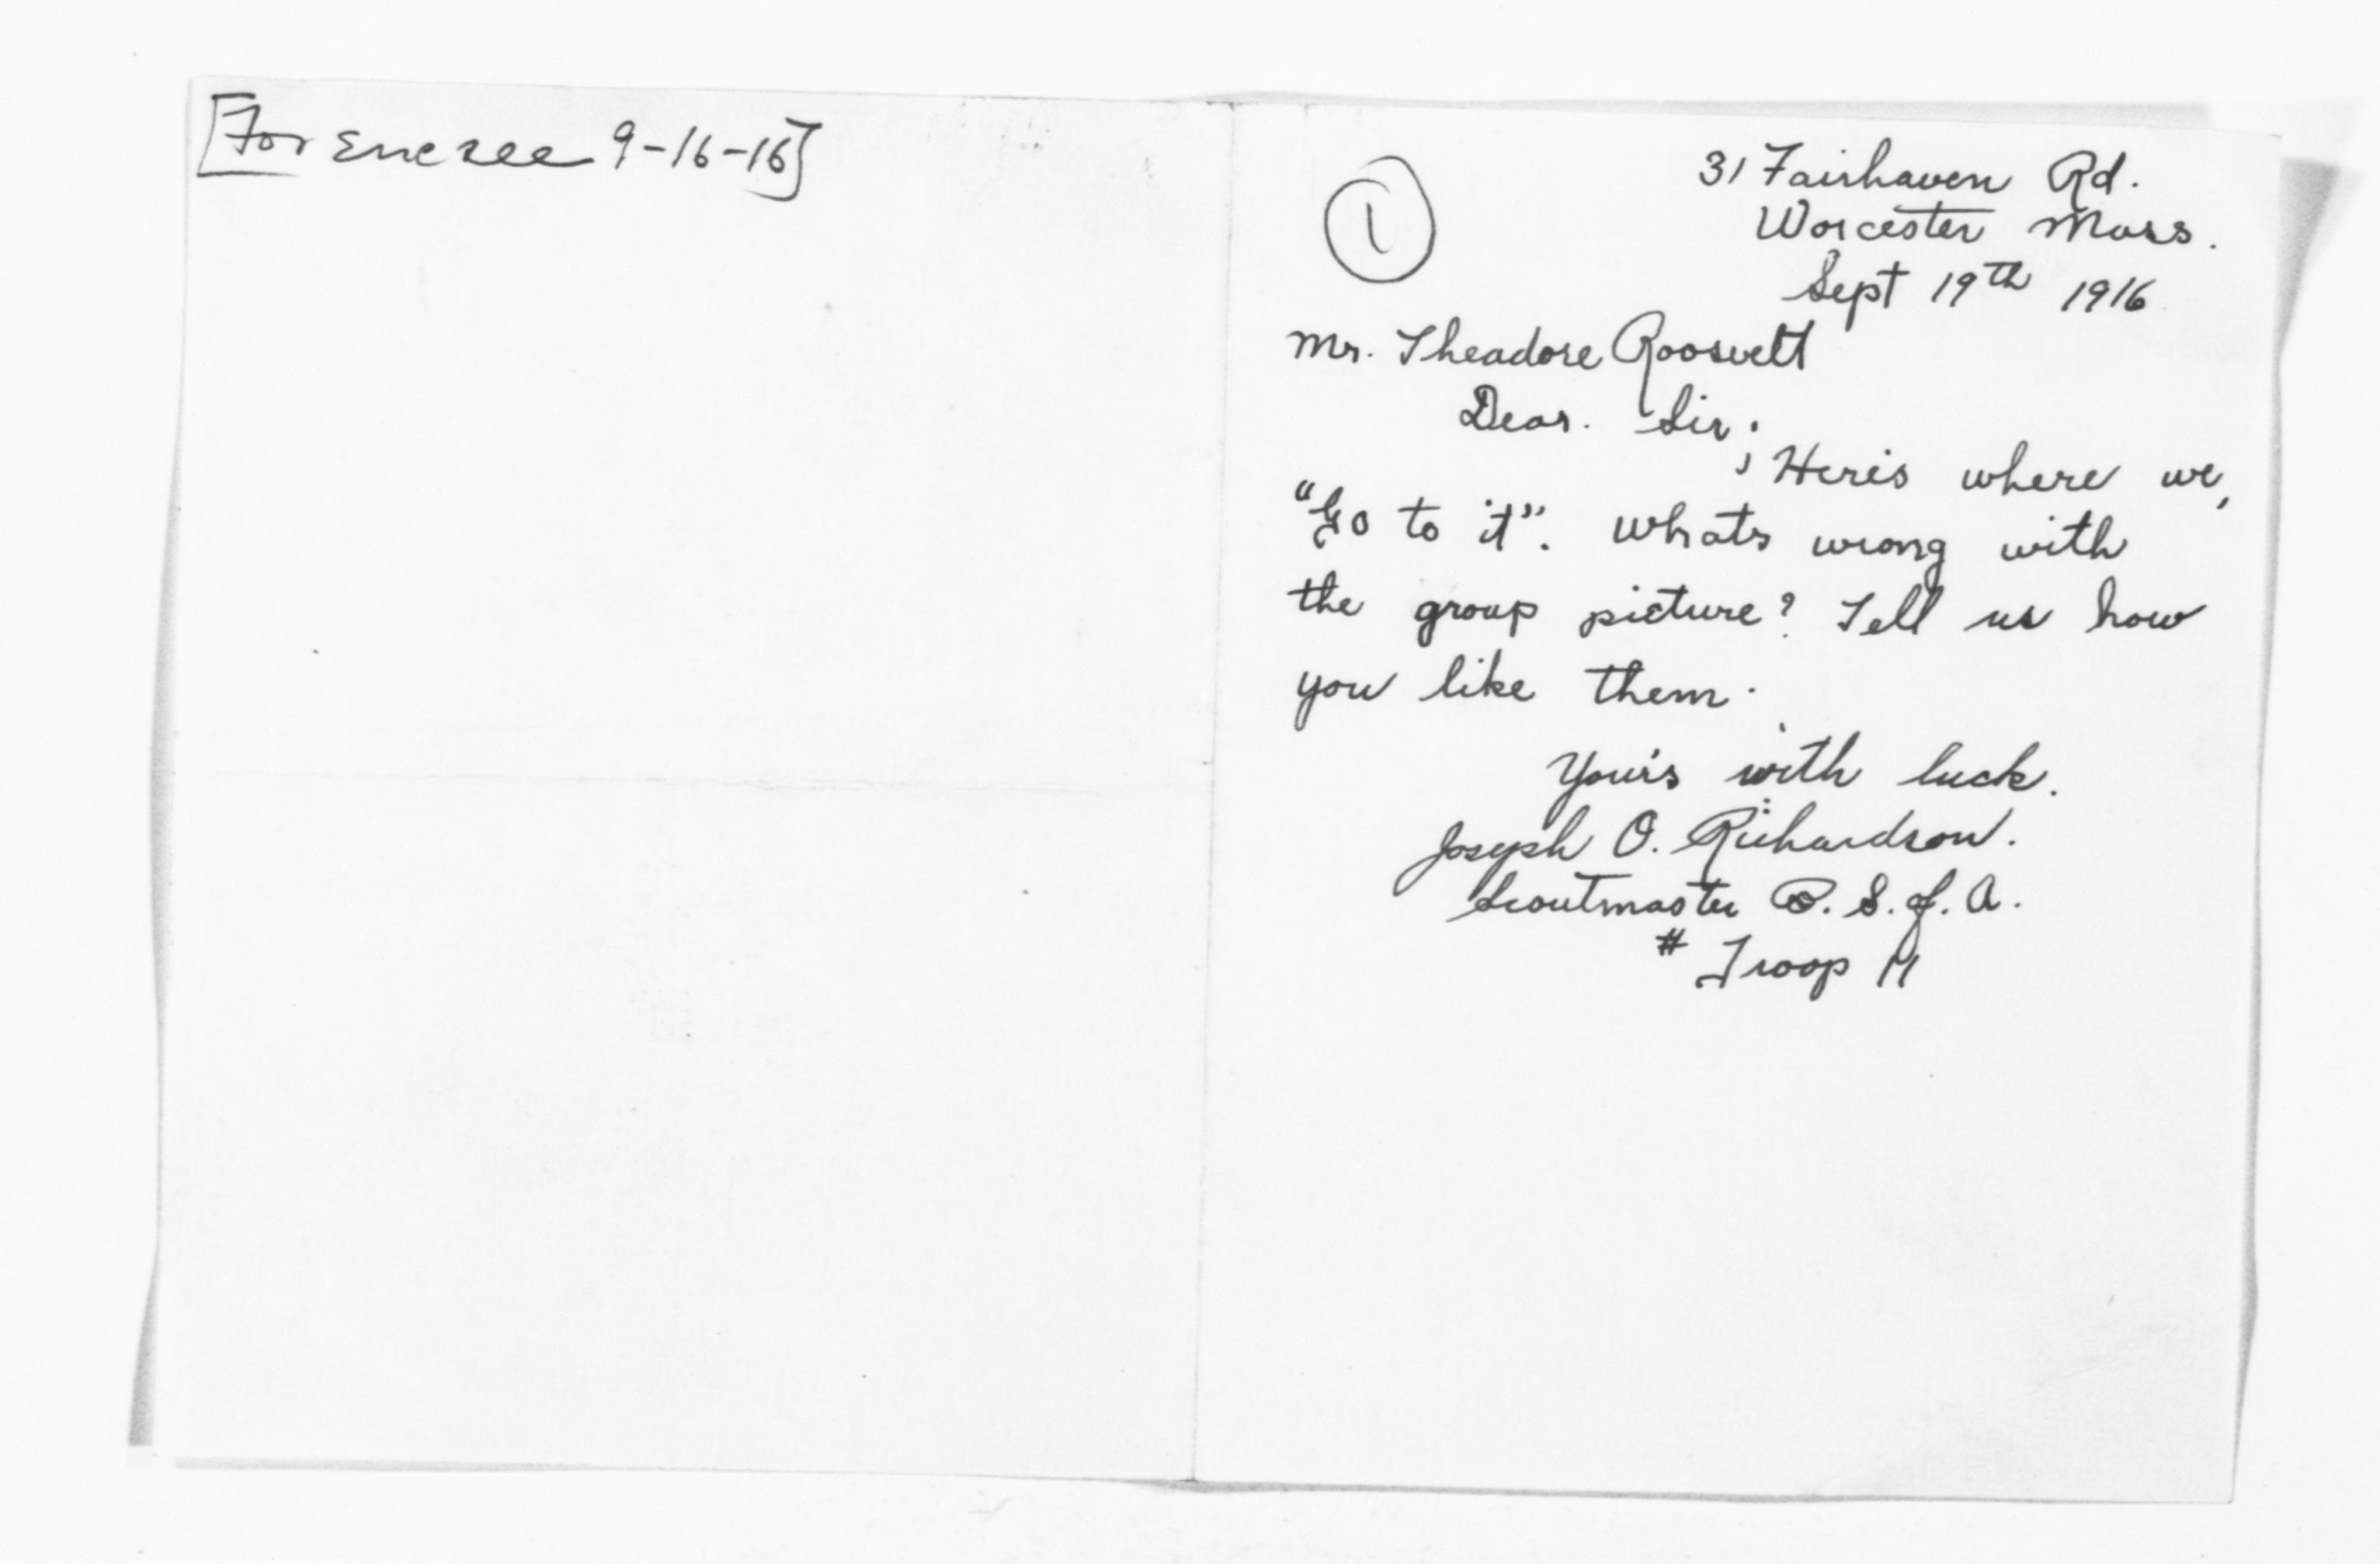 [For Enc see 9-16-16]
1
31 Fairhaven Rd.
Worcester Mass.
Sept 19th 1916
Mr. Theadore Roosvelt
Dear. Sir;
Here's where we,
"Go to it". Whats wrong with
the group picture? Tell us how
you like them.
Your's with luck.
Joseph O. Richardson.
Scoutmaster B. S. of. A.
# Troop 11